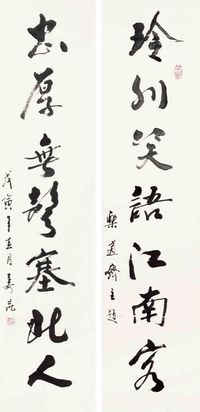 玲利笑語江南客
樂道齋主題
忠厚無聲塞北人
戊寅年五月姜昆